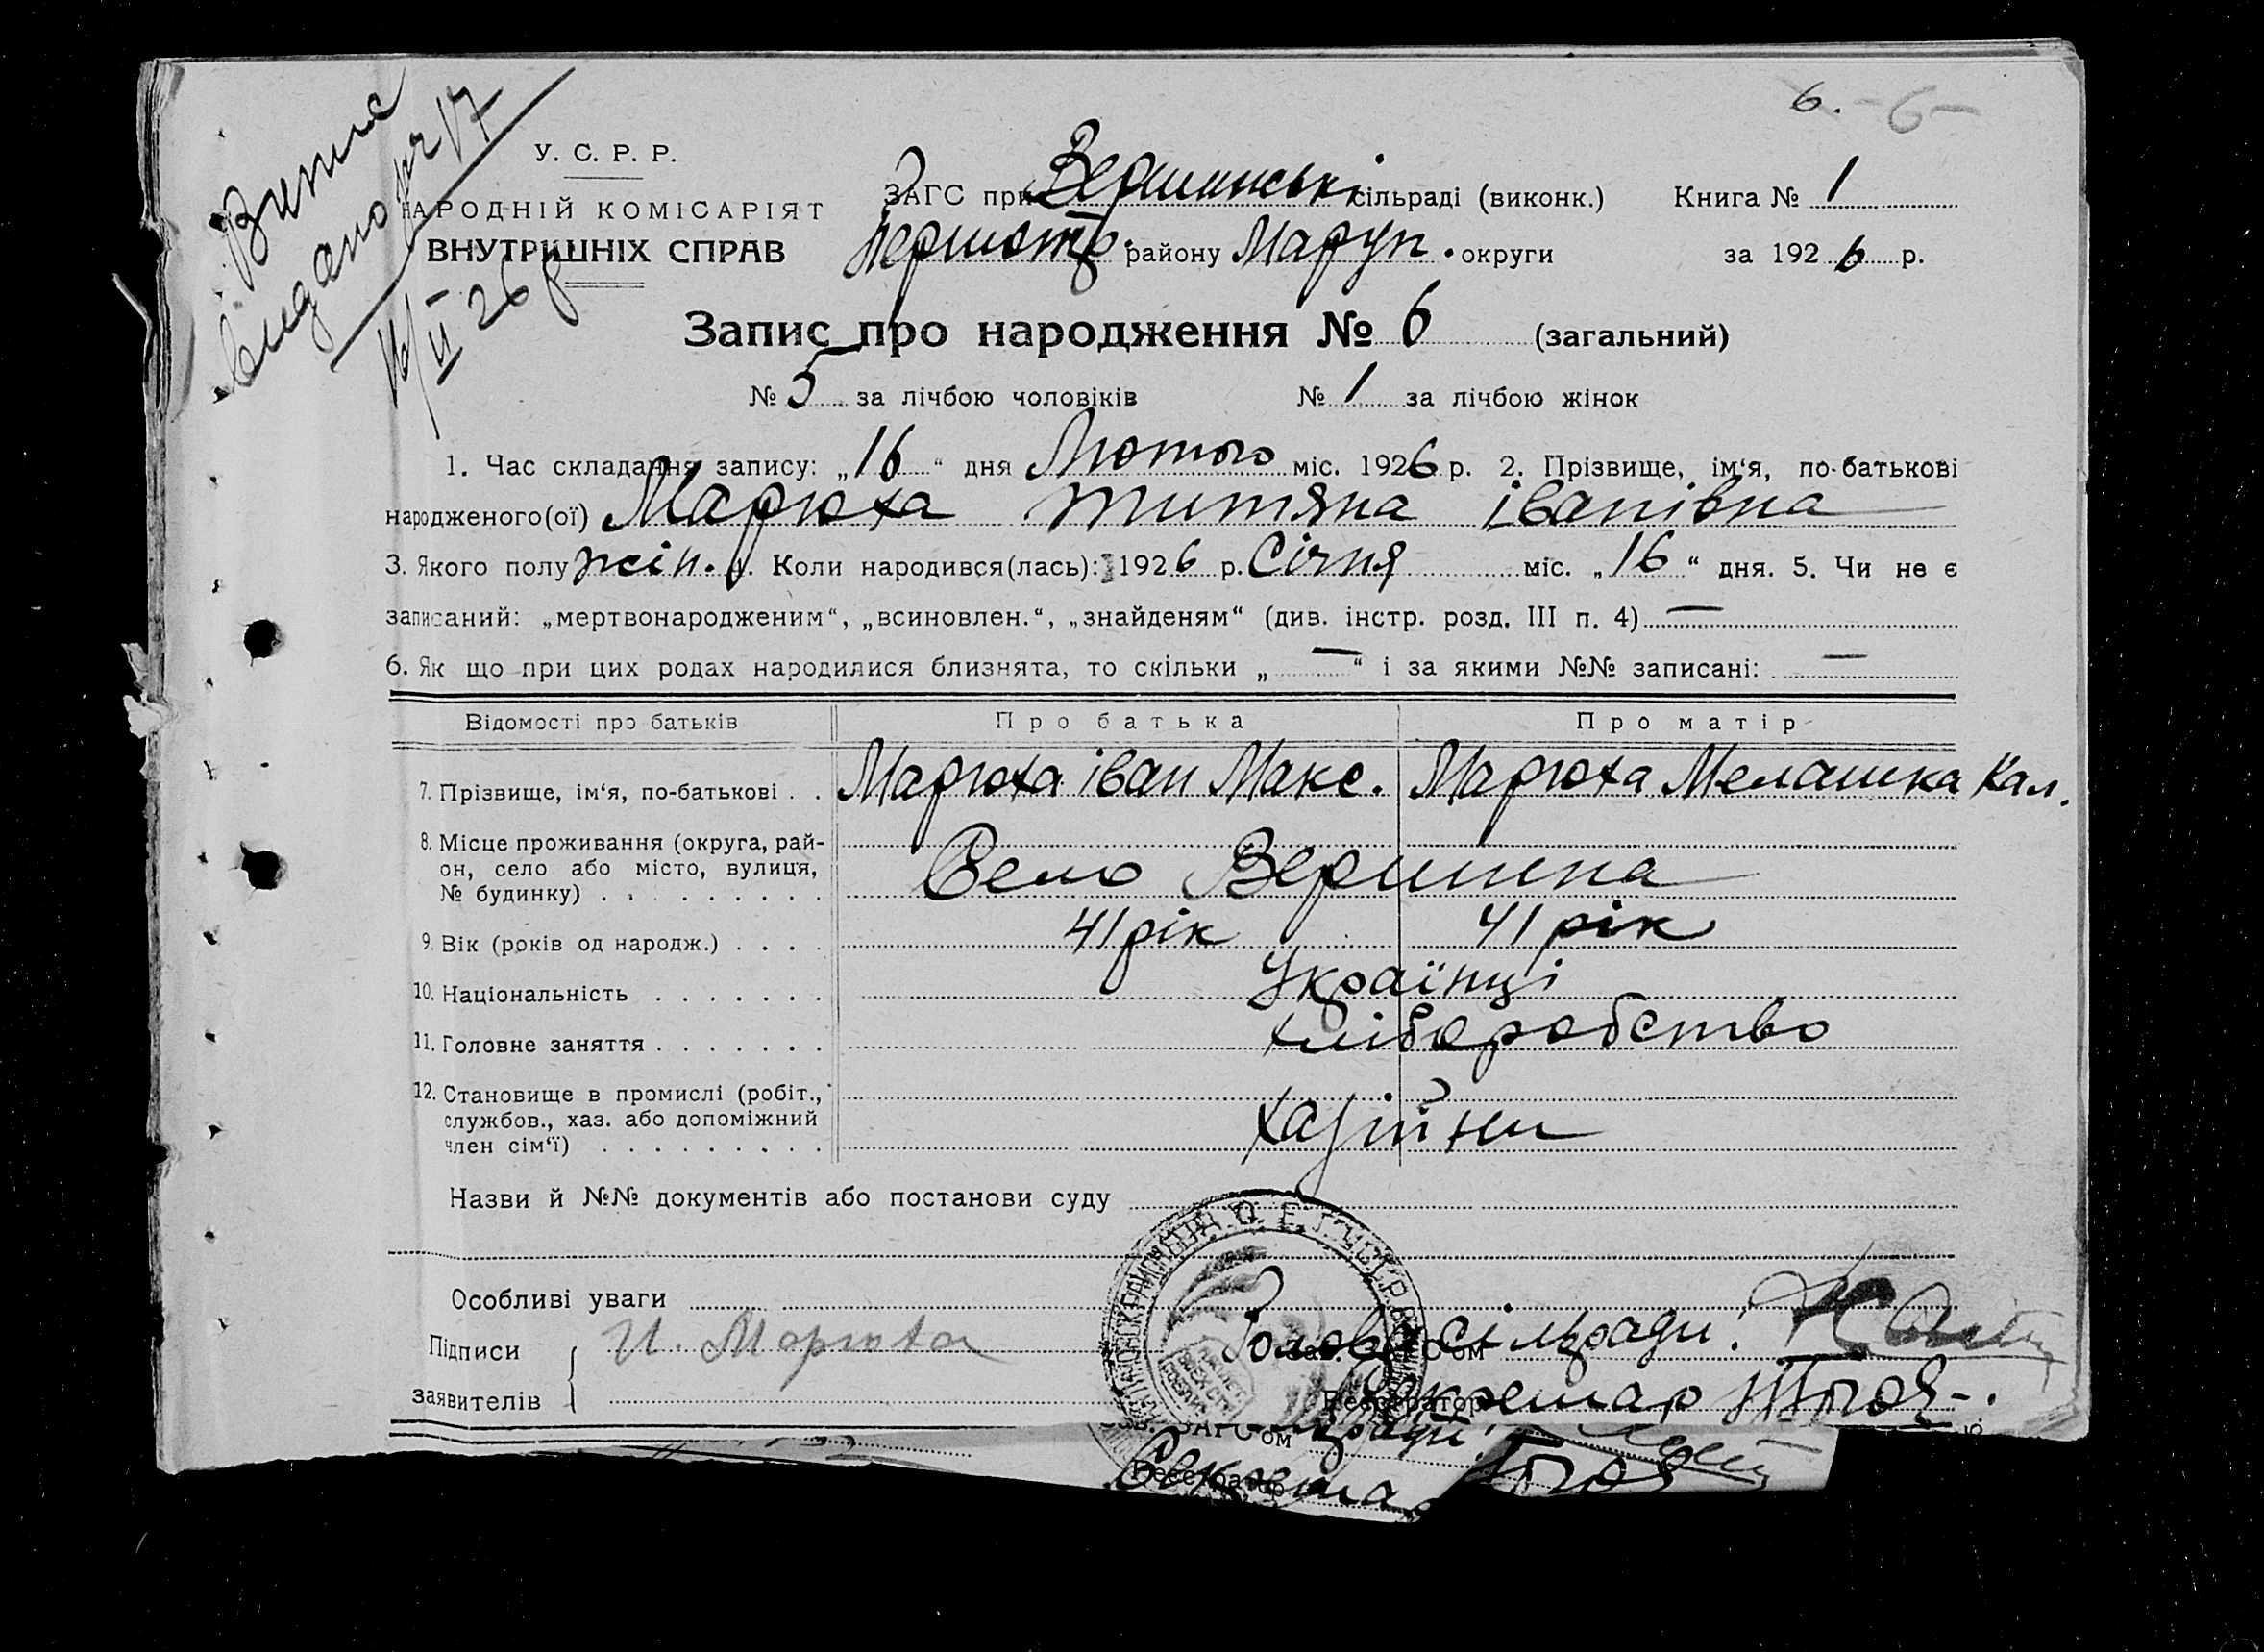 6. -6-
Витяг
видано № 17
16/II 26 р
У. С. Р. Р.
НАРОДНІЙ КОМІСАРІЯТ
ВНУТРІШНІХ СПРАВ
ЗАГС при Вершинській сільраді (виконк.) Книга № 1
Першотр. району Маруп. округи за 1926 р.
Запис про народження № 6 (загальний)
№ 5 за лічбою чоловіків № 1 за лічбою жінок
1. Час складання запису: „16“ дня Лютого міс. 1926 р. 2. Прізвище, ім‘я, по-батькові
народженого(ої) Марюха титяна івапівна
3. Якого полу жін. 4. Коли народився(лась): 1926 р. Січня міс. „16“ дня. 5. Чи не є
записаний: „мертвонародженим“, „всиновлен.“, „знайденям“ (див. інстр. розд. III п. 4) —
6. Як що при цих родах народилися близнята, то скільки „—“ і за якими №№ записані: —
Відомості про батьків Про батька Про матір
7. Прізвище, ім‘я, по-батькові . . Марюха іван Макс. Марюха Мелашка Кал.
8. Місце проживання (округа, рай-
он, село або місто, вулиця,
№ будинку) . . . . . . . . . Село Вершина
9. Вік (років од народж.) . . . . 41 рік 41 рік
10. Національність . . . . . . . Українці
11. Головне заняття . . . . . . . хліборобство
12. Становище в промислі (робіт.,
службов., хаз. або допоміжний
член сім‘ї) . . . . . . . . .
Назви й №№ документів або постанови суду
Особливі уваги
Підписи И. Марюха Голова сільради:
заявителів Реєстратор Секретар
ЗАГС‘ом
Реєстратор Секретар